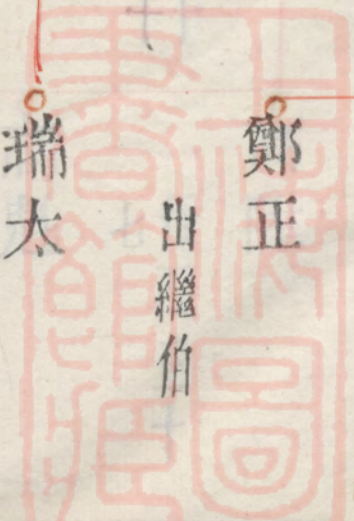 鄭正
出繼伯
瑞太